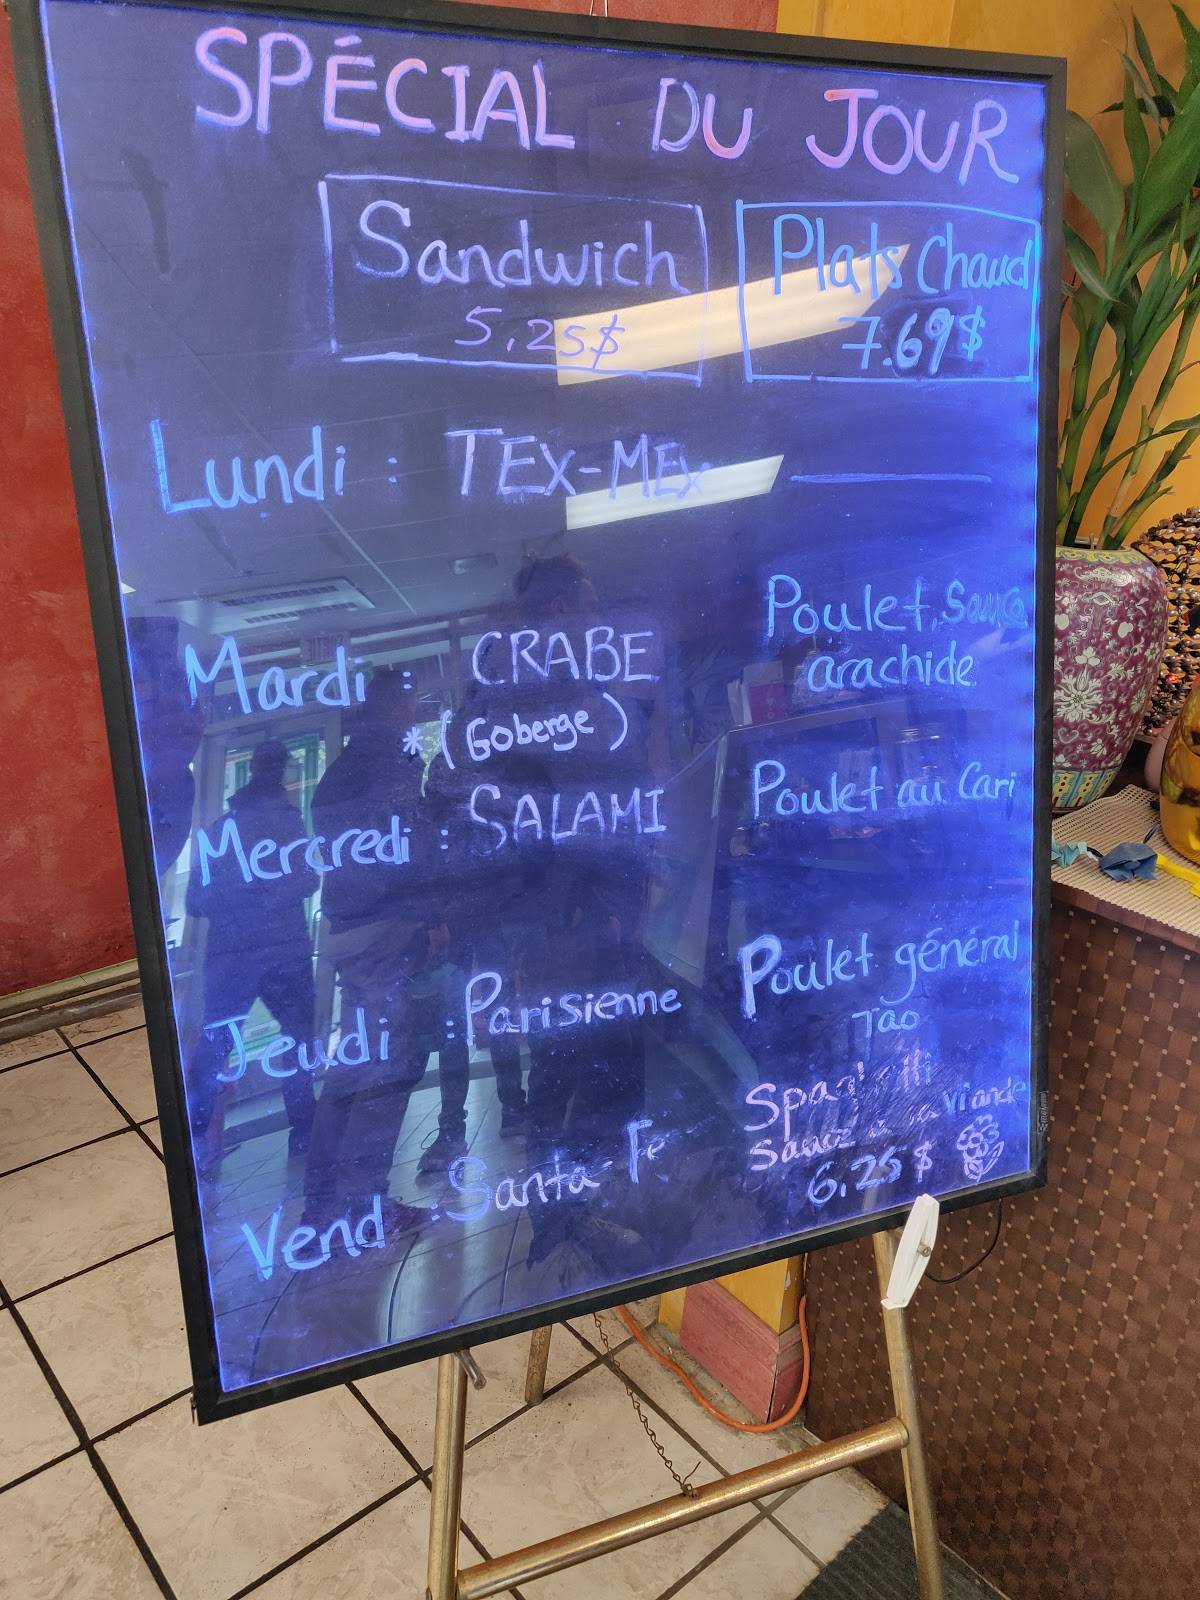 SPÉCIAL DU JOUR
Sandwich
5.25$
Plats Chaud
7.69$
Lundi : TEX-MEX
Mardi : CRABE
* (Goberge)
Poulet, Sauce
arachide
Mercredi : SALAMI
Poulet au Cari
Jeudi : Parisienne
Poulet général
Tao
Vend : Santa-Fe
Spaghetti
Sauce à la viande
6.25$